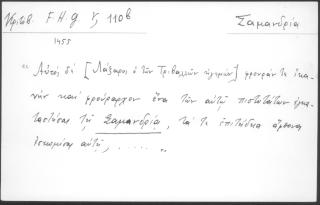 Κριτοβ. F H G V 110β Σαμανδρία
1455
"Αὐτὸς δὲ [Λάζαρος ὁ τῶν Τριβαλλῶν ἡγεμών] φρουράν τε ἱκα-
νὴν καὶ φρούραρχον ἕνα τῶν αὐτῷ πιστοτάτων ἐγκα-
ταστήσας τῇ Σαμανδρίᾳ, τά τε ἐπιτήδεια ἄφθονα
ἐσκομίσας αὐτῇ, ......."